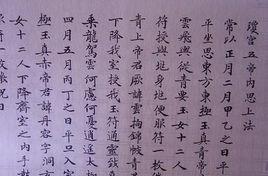 瓊宮五帝內思上法
常以正月二月甲乙之日平
平坐思東方東極玉真青帝
雲飛輿從青要玉女十二人
符授與兆身兆便服符一枚
青上帝君厥諱雲拘錦帔青
下降我室授我玉符通靈致
乘龍駕雲何慮何憂遨遊太極
四月五月丙丁之日平旦入室
極玉真赤帝君諱丹容字洞玄
女十二人下降齋室之內手執